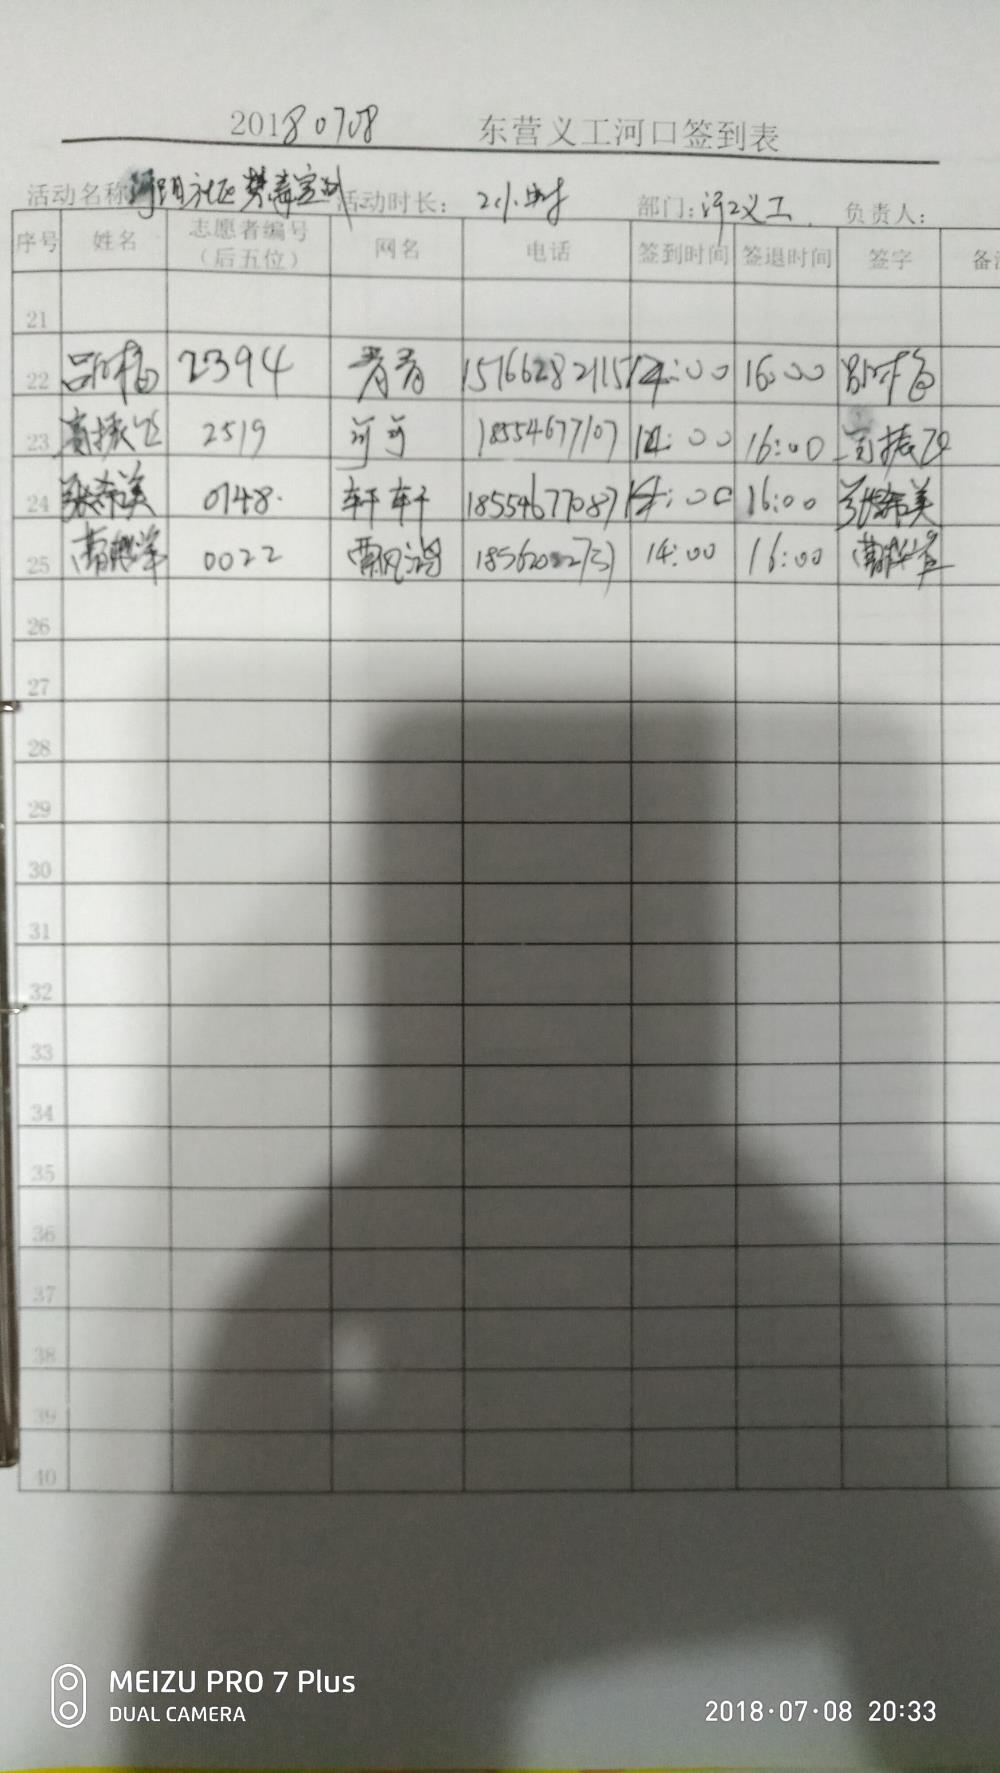 20180708 东营义工河口签到表
活动名称 社区禁毒宣传 活动时长： 2小时 部门：河口义工 负责人：
序号 姓名 志愿者编号（后五位） 网名 电话 签到时间 签退时间 签字
21
22 2394 青青 15766282115 14:00 16:00
23 高振飞 2519 可可 18554677107 14:00 16:00 高振飞
24 张希美 0148 轩轩 18554677087 14:00 16:00 张希美
25 0022 飘风 14:00 16:00
26
27
28
29
30
31
32
33
34
35
36
37
38
39
40
MEIZU PRO 7 Plus
DUAL CAMERA
2018·07·08 20:33